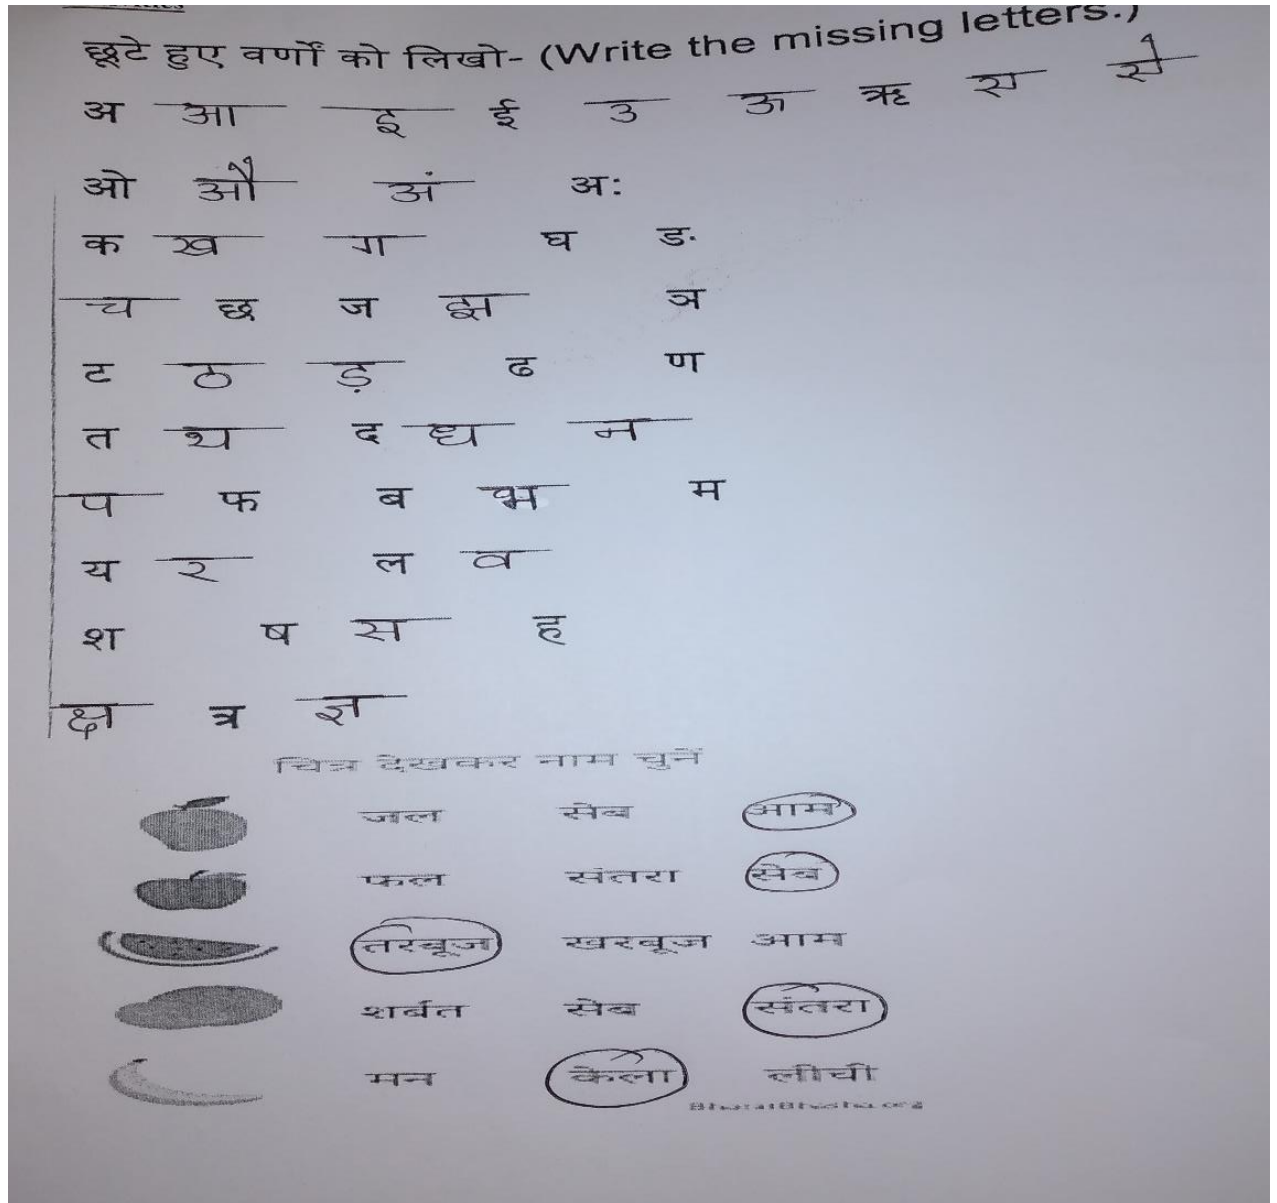 छूटे हुए वर्णों को लिखो- (Write the missing letters.)
अ आ इ ई उ ऊ ऋ स र्स
ओ औ अं अः
क ख ग घ ङ
च छ ज झ ञ
ट ठ ड़ ढ ण
त थ द ध न
प फ ब भ म
य र ल व
श ष स ह
क्ष त्र ज्ञ
चित्र देखकर नाम चुनें
जल सेब आम
फल संतरा सेब
तरबूज खरबूज आम
शर्बत सेब संतरा
मन केला लीची
BharatBhasha.org